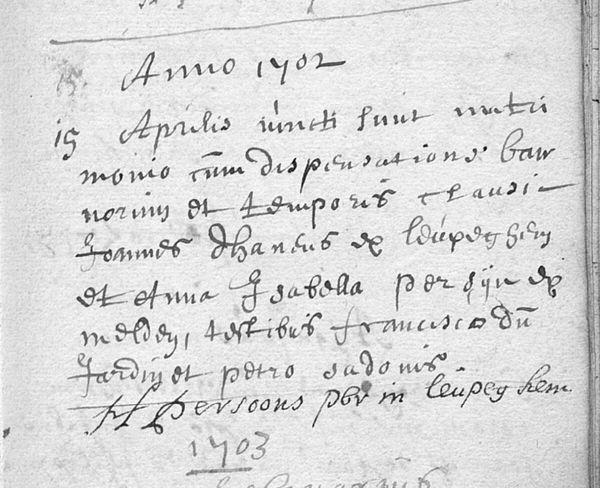 Anno 1702
15 Aprilis vincti sunt matri
monio cum dispensatione ban
norum et temporis clausi
Joannes dhaneus ex leupeghem
et Anna Isabella persijn ex
melden, testibus francisco du
Jardin et petro sadonis
persoons pbr in leupeghem
1703